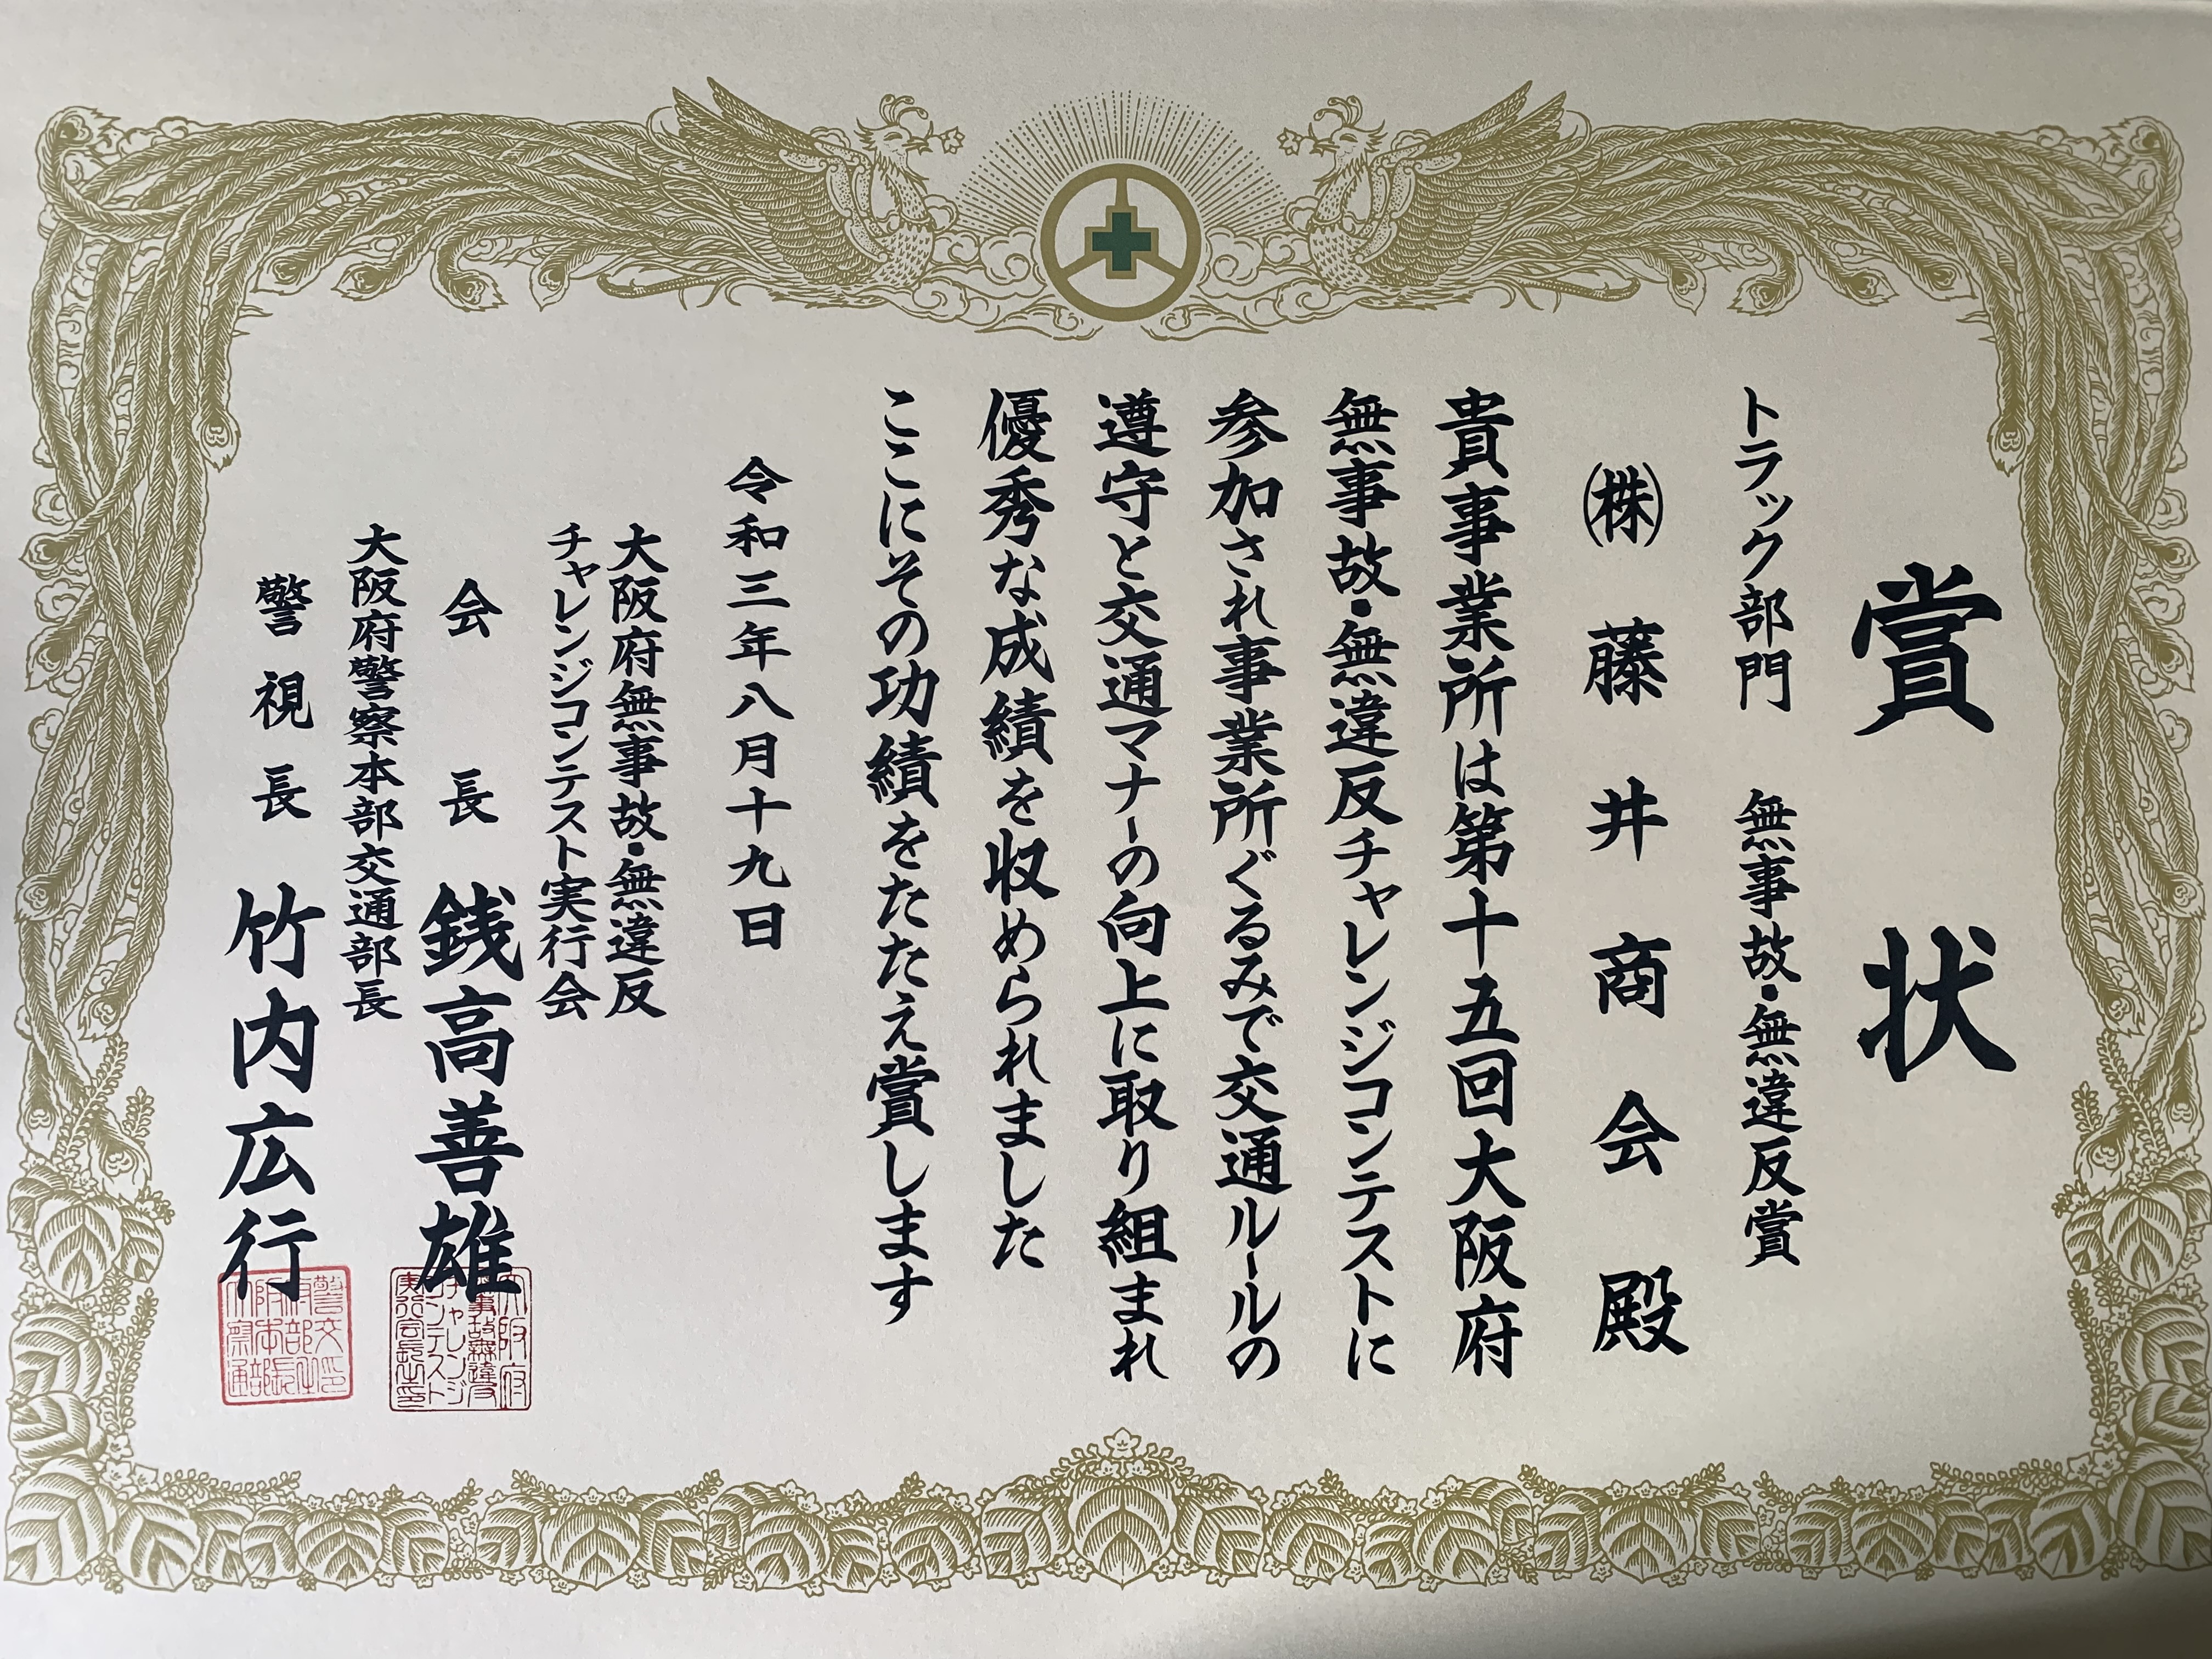 賞状
トラック部門 無事故・無違反賞
㈱藤井商会殿
貴事業所は第十五回大阪府
無事故・無違反チャレンジコンテストに
参加され事業所ぐるみで交通ルールの
遵守と交通マナーの向上に取り組まれ
優秀な成績を収められました
ここにその功績をたたえ賞します
令和三年八月十九日
大阪府無事故・無違反
チャレンジコンテスト実行会
会長 銭高善雄
大阪府警察本部交通部長
警視長 竹内広行
大阪府無事故無違反チャレンジコンテスト実行会長之印
大阪府警察本部交通部長之印